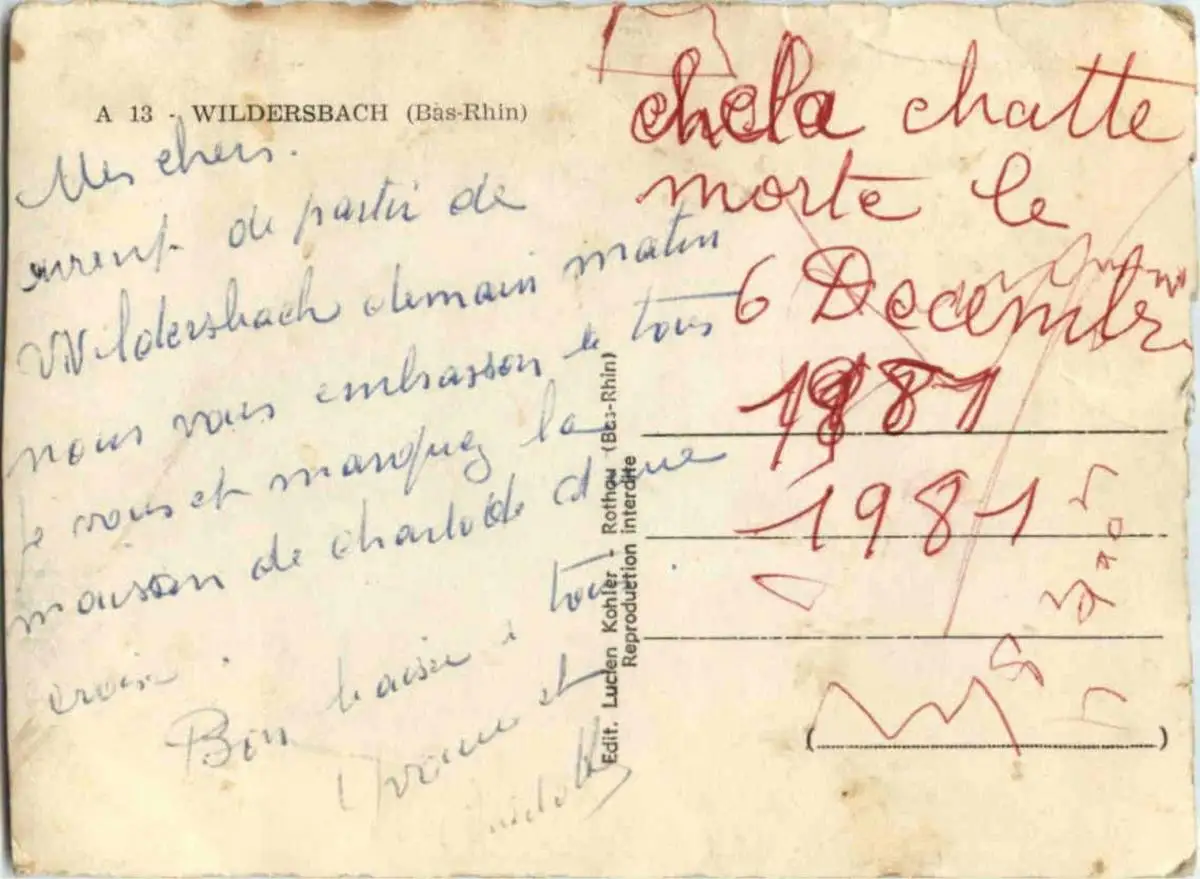 A 13 - WILDERSBACH (Bas-Rhin)
Mes chers.
avant de partir de
Wildersbach demain matin
nous vous embrasson tous
Je vous et marquez la
maison de charlotte d'une
croix.
Bon baiser a tous
Yvonne et
Edit. Lucien Kohler - Rothau (Bas-Rhin)
Reproduction interdite
chela chatte
morte le
6 Decembre
1981
1981